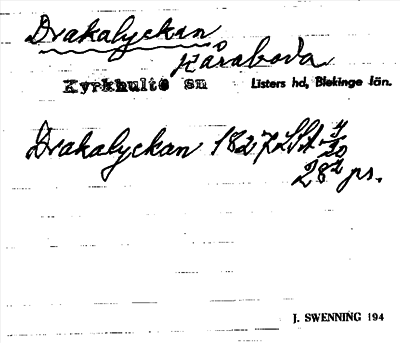 Drakalyckan
Kåraboda
Kyrkhults sn Listers hd, Blekinge län.
Drakalyckan 1827 LSA
28 ps.
J. SWENNING 194